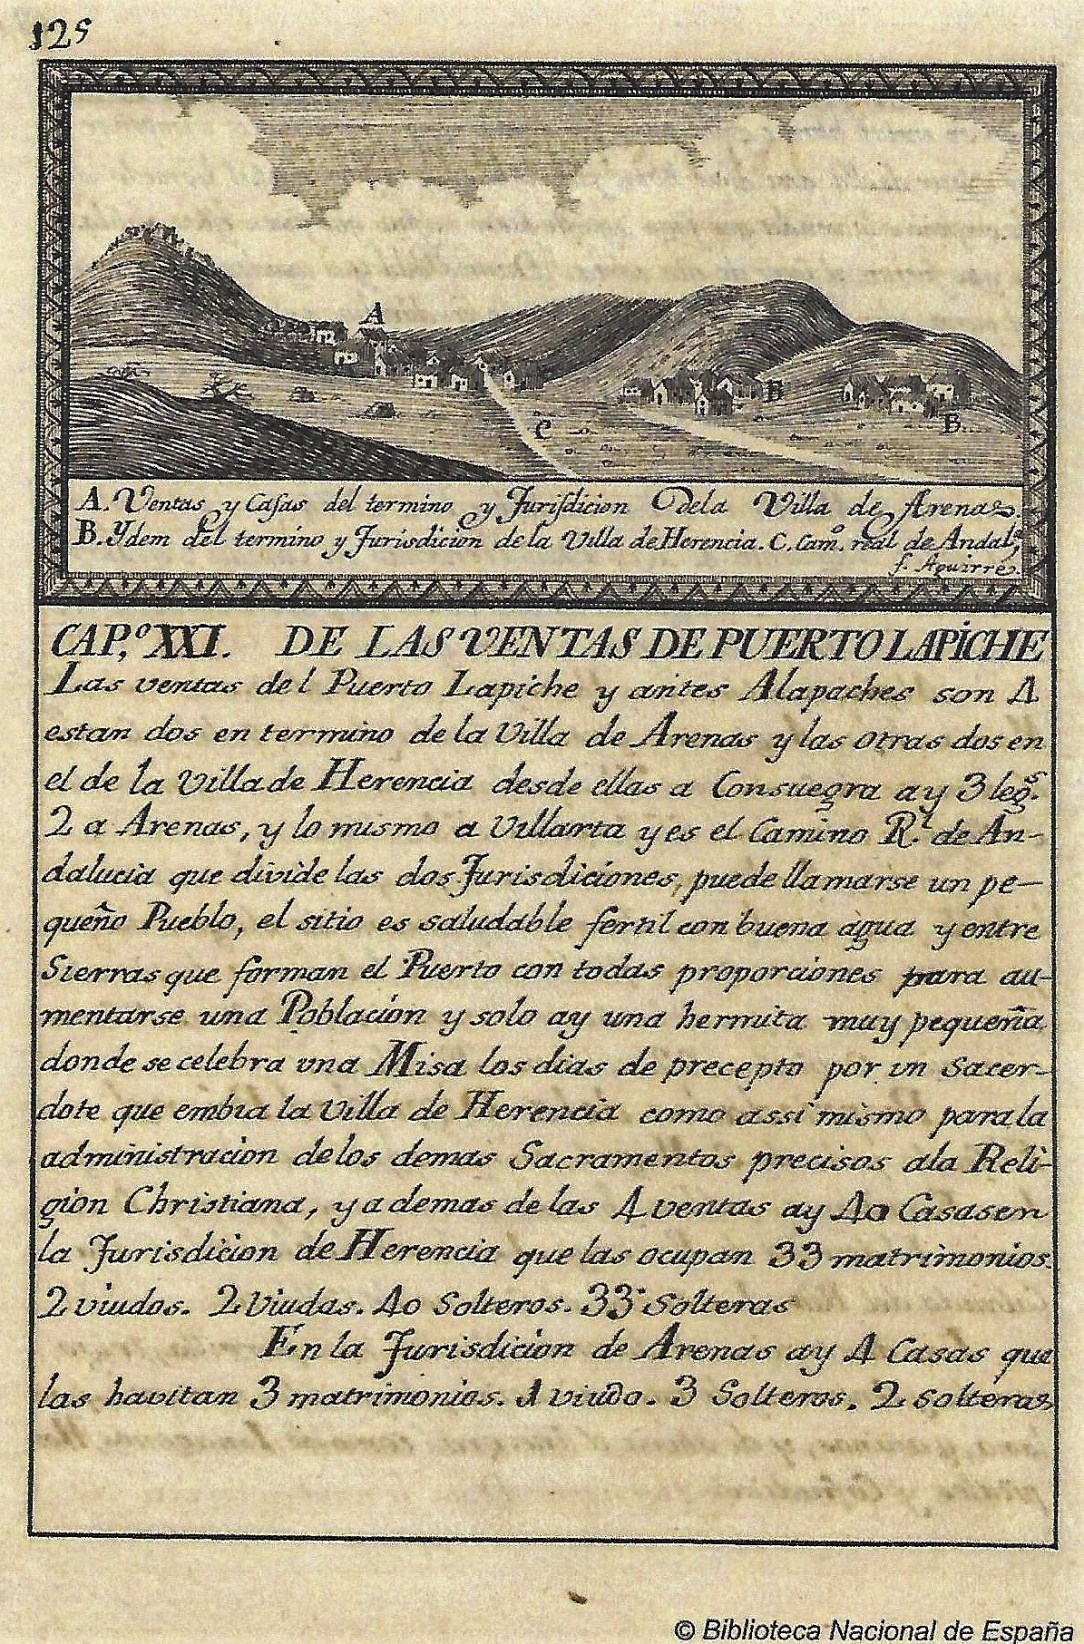 125
A
B
C
B
A. Ventas y Casas del termino y Jurisdicion dela Villa de Arenas.
B. Ydem del termino y Jurisdicion de la Villa de Herencia. C. Cam.º real de Andal.ª
f. Aguirre.
CAP.º XXI. DE LAS VENTAS DE PUERTO LAPICHE
Las ventas del Puerto Lapiche y antes Alapaches son 4
estan dos en termino de la Villa de Arenas y las otras dos en
el de la Villa de Herencia desde ellas a Consuegra ay 3 leg.s
2 a Arenas, y lo mismo a Villarta y es el Camino R.l de An-
dalucia que divide las dos Jurisdiciones, puede llamarse un pe-
queño Pueblo, el sitio es saludable fertil con buena àgua y entre
Sierras que forman el Puerto con todas proporciones para au-
mentarse una Población y solo ay una hermita muy pequeña
donde se celebra vna Misa los dias de precepto por vn Sacer-
dote que embia la Villa de Herencia como assi mismo para la
administracion de los demas Sacramentos precisos ala Reli-
gion Christiana, y a demas de las 4 ventas ay 40 Casas en
la Jurisdicion de Herencia que las ocupan 33 matrimonios.
2 viudos. 2 Viudas. 40 Solteros. 33 Solteras
En la Jurisdicion de Arenas ay 4 Casas que
las havitan 3 matrimonios. 1 viudo. 3 Solteros. 2 solteras
© Biblioteca Nacional de España